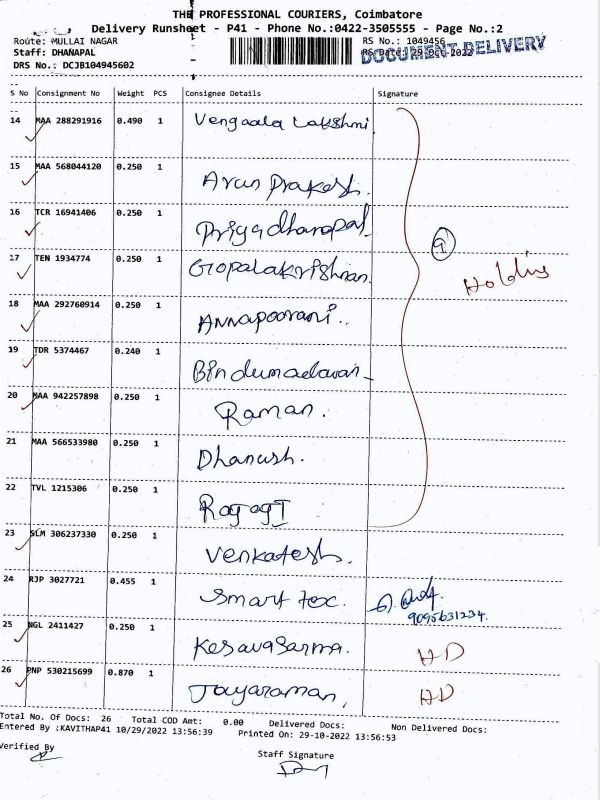 THE PROFESSIONAL COURIERS, Coimbatore
Delivery Runsheet - P41 - Phone No.:0422-3505555 - Page No.:2
Route: MULLAI NAGAR RS No.: 1049456
Staff: DHANAPAL RS Date: 29-Oct-2022 DOCUMENT DELIVERY
DRS No.: DCJB104945602
S No Consignment No Weight PCS Consignee Details Signature
14 MAA 288291916 0.490 1 Vengaala Lakshmi
15 MAA 568044120 0.250 1 Arun Prakash.
16 TCR 16941406 0.250 1 Priya dhanapal
17 TEN 1934774 0.250 1 Gopalakrishnan.
Holding
18 MAA 292760914 0.250 1 Annapoorani..
19 TDR 5374467 0.240 1 Bindumadavan
20 MAA 942257898 0.250 1 Raman.
21 MAA 566533980 0.250 1 Dhanush.
22 TVL 1215306 0.250 1
23 SLM 306237330 0.250 1 Venkatesh.
24 RJP 3027721 0.455 1 Smart tex.
9095631234.
25 NGL 2411427 0.250 1 Kesavasarma. HD
26 PNP 530215699 0.870 1 Jayaraman, HD
Total No. Of Docs: 26 Total COD Amt: 0.00 Delivered Docs: Non Delivered Docs:
Entered By :KAVITHAP41 10/29/2022 13:56:39 Printed On: 29-10-2022 13:56:53
Verified By
Staff Signature